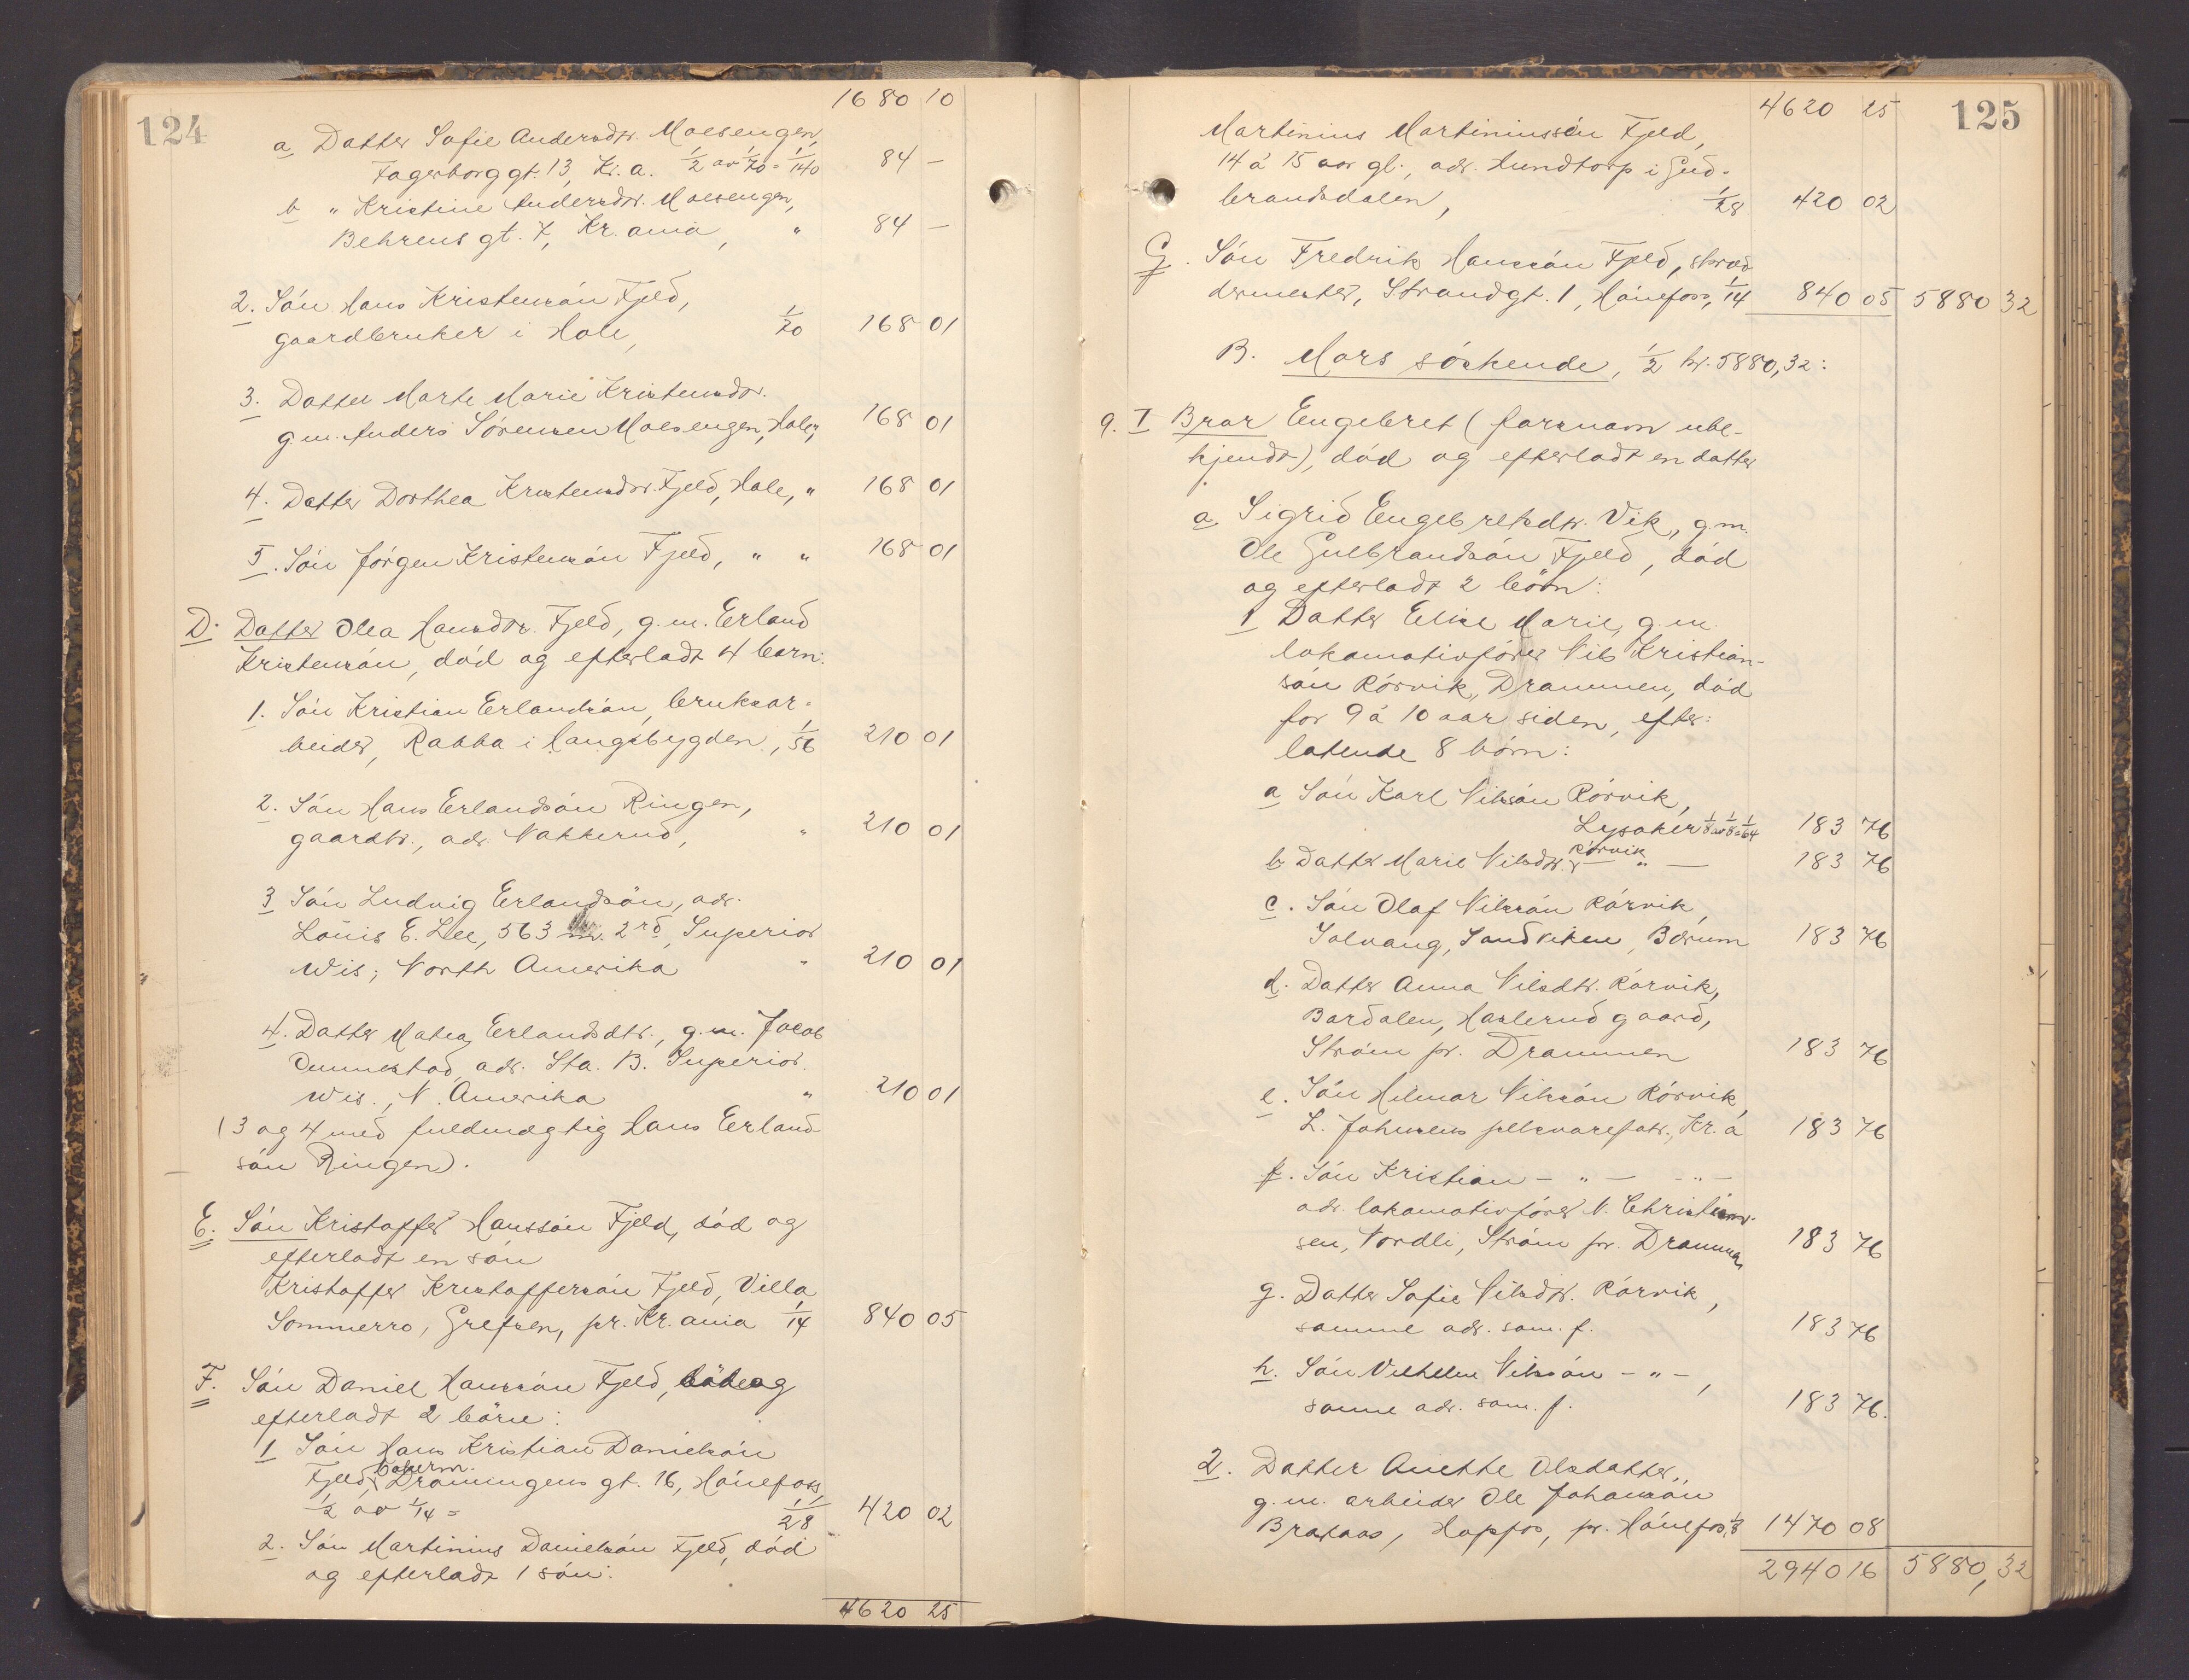 124
1680 10
a Datter Sofie Andersdtr. Moesengen,
Fagerborggt. 13, Kr.a. 1/2 av 1/70 = 1/140 84 —
b " Kristine Andersdtr. Moesengen,
Behrens gt. 7, Kr.ania, " 84 —
2. Sön Hans Kristensön Fjeld,
gaardbruker i Hole, 1/70 168 01
3. Datter Marte Marie Kristensdtr.
g.m. Anders Sörensen Moesengen, Hole, " 168 01
4. Datter Dorthea Kristensdtr. Fjeld, Hole, " 168 01
5. Sön Jörgen Kristensön Fjeld, " " 168 01
D. Datter Olea Hansdtr. Fjeld, g.m. Erland
Kristensön, död og efterladt 4 barn:
1. Sön Kristian Erlandsön, bruksar-
beider, Rabba i Haugsbygden, 1/56 210 01
2. Sön Hans Erlandsön Ringen,
gaardbr., adr. Nakkerud, " 210 01
3 Sön Ludvig Erlandsön, adr.
Louis E. Lee, 563 2rd, Superior
Wis; North Amerika " 210 01
4. Datter Matea Erlandsdtr., g.m. Jacob
adr. Sta. B. Superior.
Wis., N. Amerika " 210 01
(3 og 4 med fuldmægtig Hans Erland-
sön Ringen).
E. Sön Kristoffer Hanssön Fjeld, död og
efterladt en sön
Kristoffer Kristoffersön Fjeld, Villa
Sommerro, Grefsen, pr. Kr.ania 1/14 840 05
F. Sön Daniel Hanssön Fjeld, död og
efterladt 2 börn:
1 Sön Hans Kristian Danielsön
Fjeld, bakerm. Dronningens gt. 16, Hönefoss,
1/2 av 1/14 = 1/28 420 02
2. Sön Martinius Danielsön Fjeld, död
og efterladt 1 sön:
4620 25
125
4620 25
Martinius Martiniussön Fjeld,
14 á 15 aar gl., adr. Hundtorp i Gud-
brandsdalen, 1/28 420 02
G. Sön Fredrik Hanssön Fjeld, skræd-
dermester, Strandgt. 1, Hönefoss, 1/14 840 05 5880 32
B. Mors söskende, 1/2 kr. 5880,32:
9. I Bror Engebret (farsnavn ube-
kjendt), död og efterladt en datter
a. Sigrid Engebretsdtr. Vik, g.m.
Ole Gulbrandsön Fjeld, död
og efterladt 2 börn:
1 Datter Elise Marie, g.m.
lokomotivförer Nils Kristian-
sön Rörvik, Drammen, död
for 9 á 10 aar siden, efter-
latende 8 börn:
a Sön Karl Nilssön Rörvik,
Lysaker 1/8 av 1/8 = 1/64 183 76
b Datter Marie Nilsdtr. Rörvik — " — 183 76
c. Sön Olaf Nilssön Rörvik,
Solvang, Sandviken, Bærum 183 76
d. Datter Anna Nilsdtr. Rörvik,
Bordalen, Haslerud gaard,
Ström pr. Drammen 183 76
e. Sön Hilmar Nilssön Rörvik,
L. Johnsens pelsvarefabr., Kr.a 183 76
f. Sön Kristian — " — — " —
adr. lokomotivförer N. Christian-
sen, Nordli, Ström pr. Drammen 183 76
g. Datter Sofie Nilsdtr. Rörvik,
samme adr. som f. 183 76
h. Sön Vilhelm Nilssön — " — ,
samme adr. som f. 183 76.
2. Datter Anette Olsdatter,
g.m. arbeider Ole Johansön
Braknas, Hofsfos, pr. Hönefos, 1/8 1470 08
2940 16 5880,32